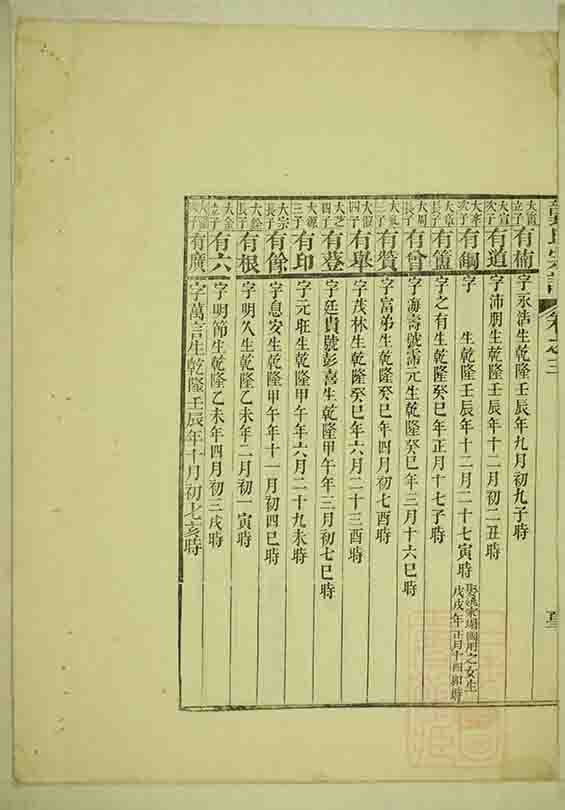 氏宗譜 卷之三
立子 有楠 字永浩生乾隆壬辰年九月初九子時
大宣次子 有道 字沛朋生乾隆壬辰年十二月初二丑時
次子 有鋼 字 生乾隆壬辰年十二月二十七寅時 之女生戊戌年正月十四卯時
大章長子 有簠 字之有生乾隆癸巳年正月十七子時
大周長子 有會 字海壽號濡元生乾隆癸巳年三月十六巳時
三子 有贊 字富弟生乾隆癸巳年四月初七酉時
四子 有舉 字茂林生乾隆癸巳年六月二十三酉時
大芝四子 有登 字廷貴號彭喜生乾隆甲午年三月初七巳時
大源三子 有印 字元旺生乾隆甲午年六月二十九未時
大宗長子 有餘 字息安生乾隆甲午年十一月初四巳時
長子 有根 字明久生乾隆乙未年二月初一寅時
大金立子 有六 字明節生乾隆乙未年四月初三戌時
有廣 字萬言生乾隆壬辰年十月初七亥時